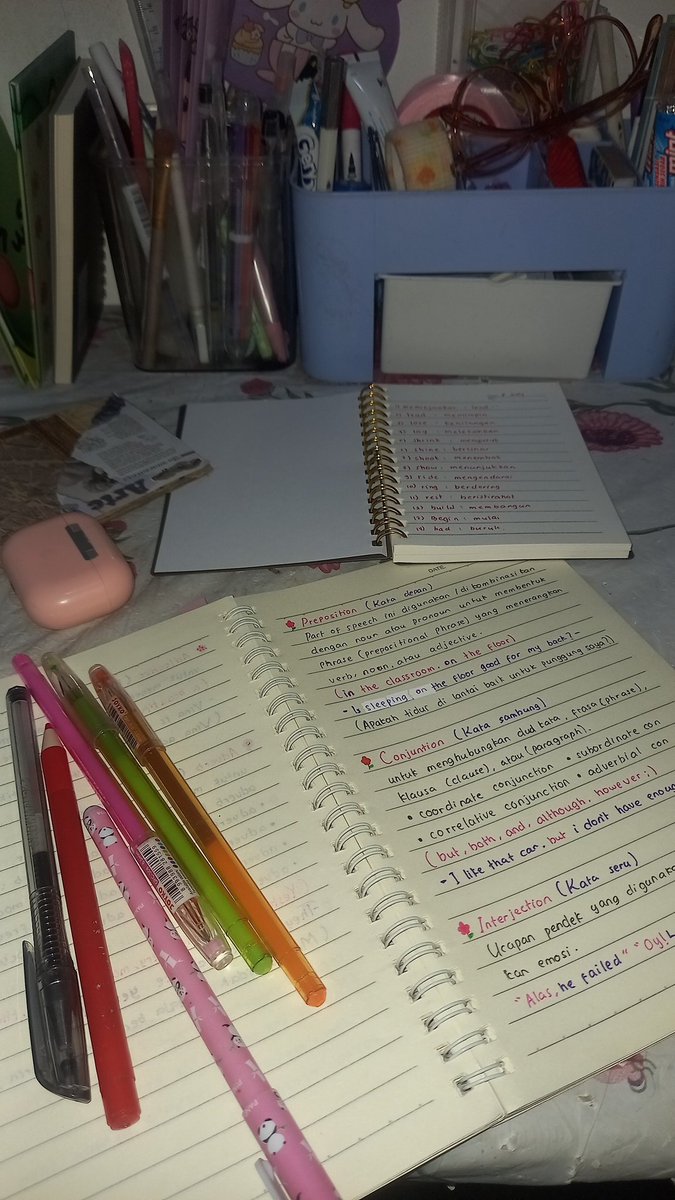 lead : memimpin
lose : kehilangan
lay : meletakkan
shrink : mengerut
shine : bersinar
shoot : menembak
show : menunjukkan
9) ride : mengendarai
10) ring : berdering
11) rest : beristirahat
12) build : membangun
13) Begin : mulai
14) bad : buruk
Arte
DATE
Preposition (Kata depan)
Part of speech ini digunakan / di kombinasi kan
dengan noun atau pronoun untuk membentuk
phrase (prepositional phrase) yang menerangkan
verb, noun, atau adjective.
(in the classroom, on the floor)
- Is sleeping on the floor good for my back? -
(Apakah tidur di lantai baik untuk punggung saya?)
Conjuntion (Kata sambung)
untuk menghubungkan dua kata, frasa (phrase),
klausa (clause), atau (paragraph).
• coordinate conjunction • subordinate con
• correlative conjunction • adverbial con
(but, both, and, although, however;)
- I like that car. but i don't have enoug
Interjection (Kata seru)
Ucapan pendek yang digunaka
kan emosi.
"Alas, he failed" "Oy! L